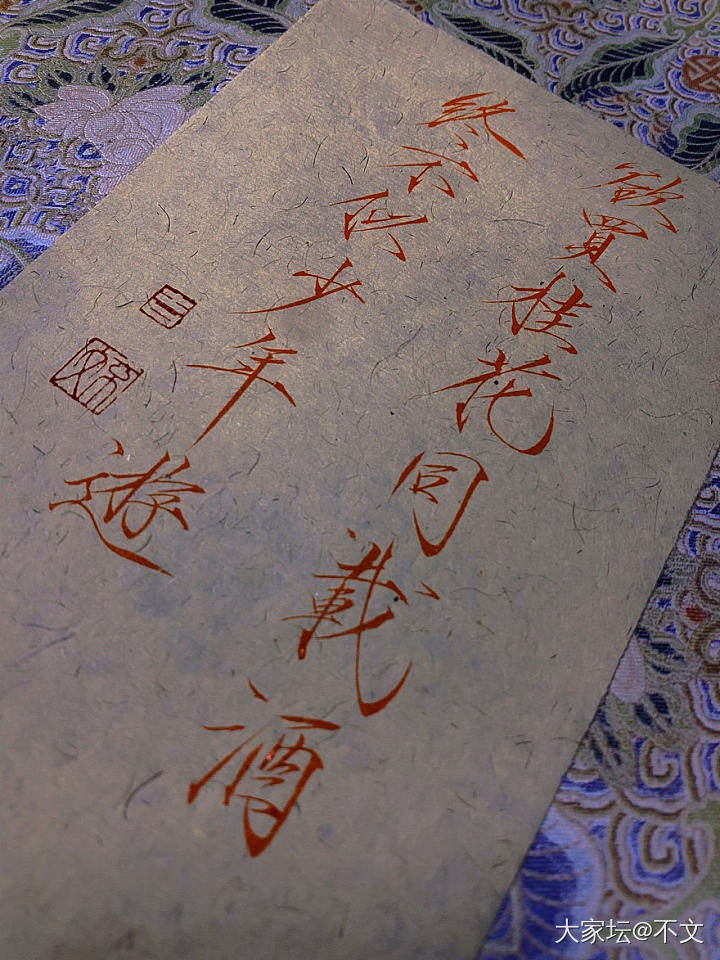 欲買桂花同載酒
終不似少年遊
大家坛@不文